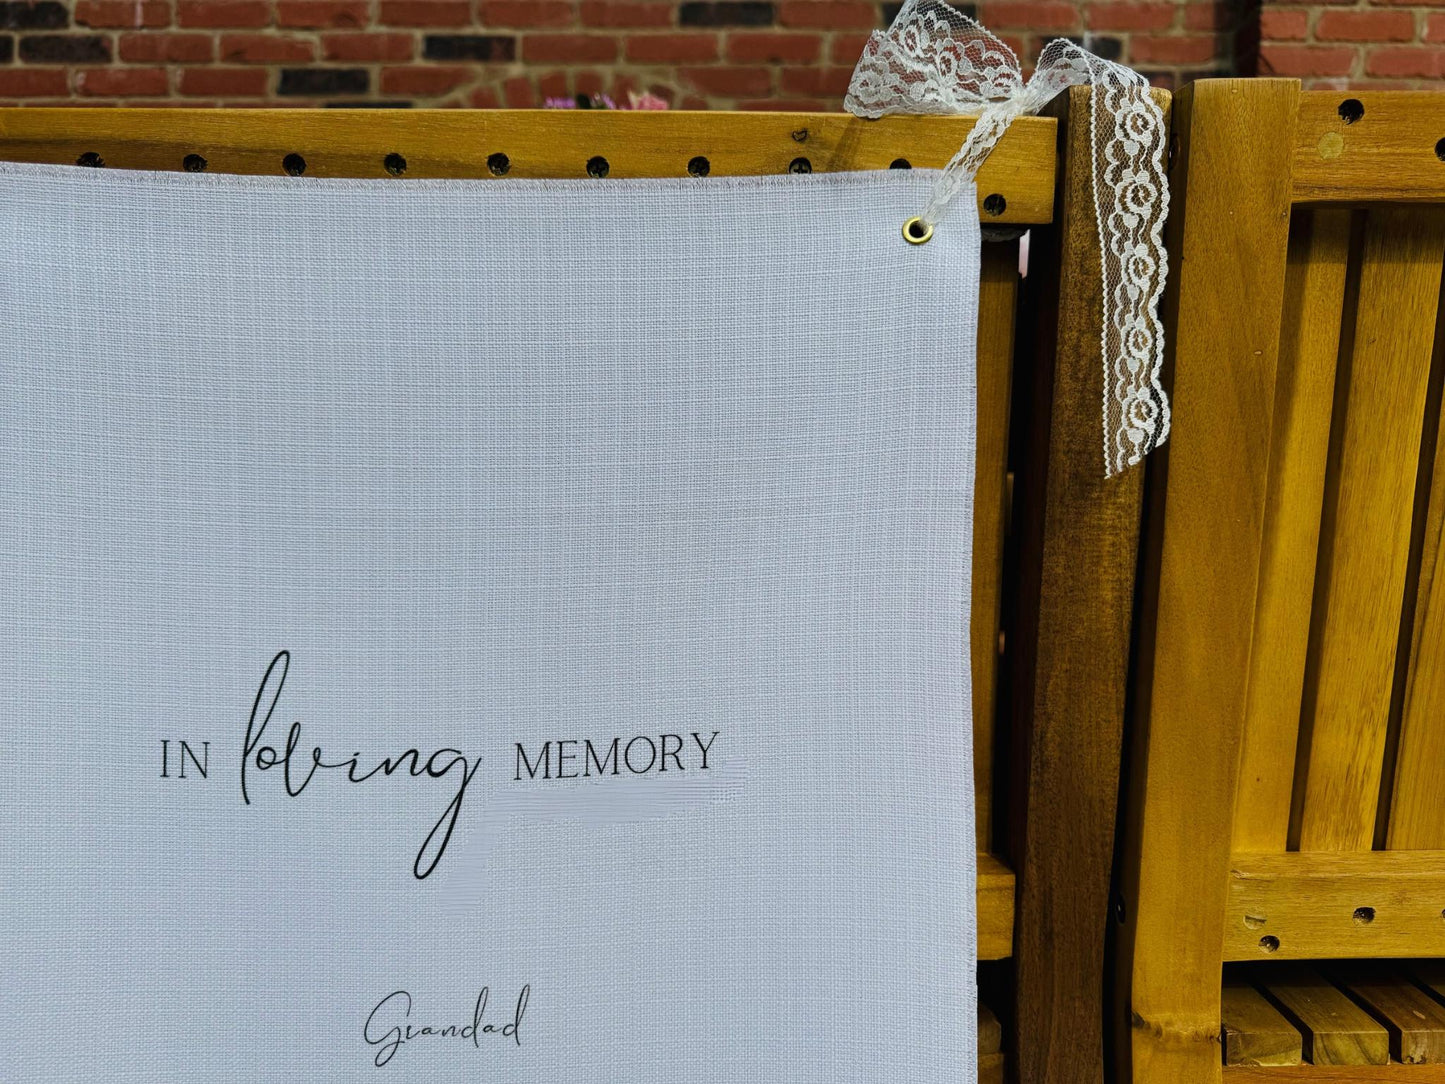 IN loving MEMORY
Grandad